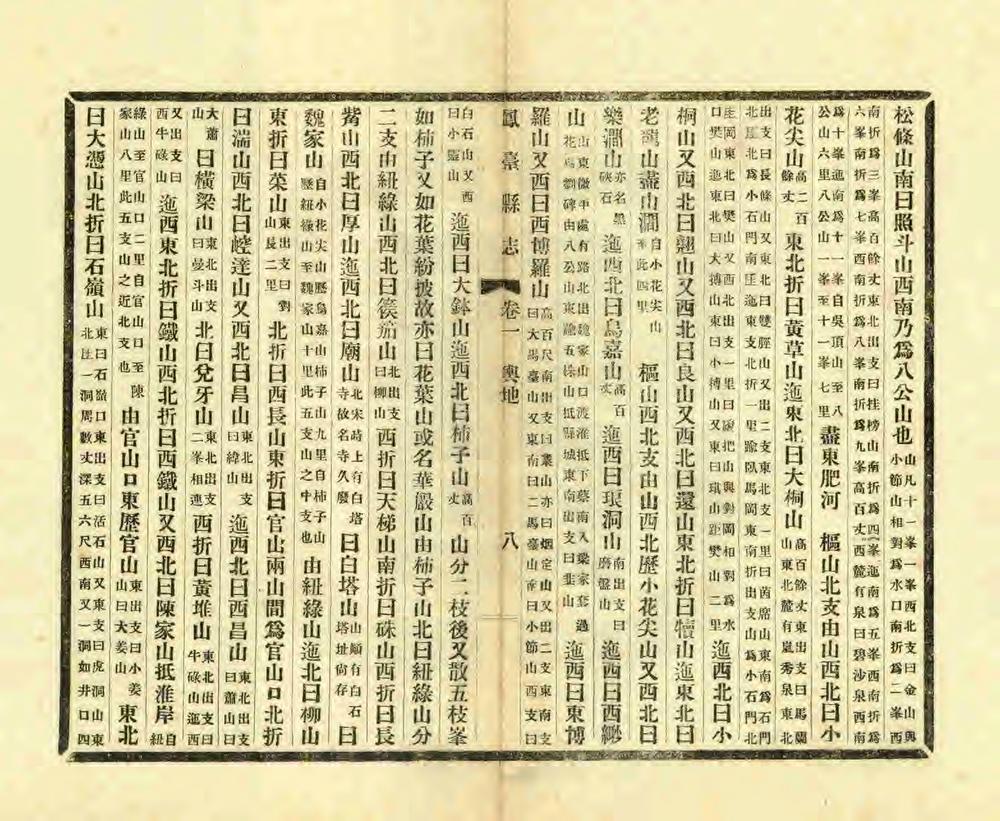 松條山南曰照斗山西南乃爲八公山也山凡十一峯一峯西北支曰金山與小節山相對爲水口南折爲二峯西
南折爲三峯高百餘丈東北出支曰挂榜山南折爲四峯迤南爲五峯西南折爲六峯南折爲七峯西南折爲八峯南折爲九峯高百丈西麓有泉曰碧沙泉西南
爲十峯迤南爲十一峯自吳頂山至八公山六里八公山一峯至十一峯七里盡東肥河　樞山北支由山西北曰小
花尖山高二百餘丈東北折曰黃草山迤東北曰大桐山高百餘丈東出支曰馬蘭山東北麓有嵐秀泉東北
出支曰長條山又東北曰雙脛山又出二支東北支一里曰茵席山東南爲石門北北爲小石門南迤東支北折一里踰臥馬岡東南折出支山爲小石門北
岡東北曰樊山又西北出支一里曰山與對岡相對爲水口樊山迤東北曰大摶山東曰小摶山又東曰琪山距樊山二里迤西北曰小
桐山又西北曰翹山又西北曰良山又西北曰還山東北折曰犢山迤東北曰
老龍山盡山澗自小花尖山至此四里　樞山西北支由山西北歷小花尖山又西北曰
樂澗山亦名黑硤石迤西北曰烏嘉山高百丈迤西曰琅洞山南出支曰磨盤山迤西曰西
山山東微中處有路北出山口渡淮抵下蔡南入家套過花劉碑由八公山東踰五山抵縣城東南出支曰韭山迤西曰東博
羅山又西曰西博羅山高百尺南出支曰叢山亦曰烟定山又出二支東南支曰大馬臺山又東南曰二馬臺山南曰小節山西支曰
鳳臺縣志　卷一　輿地　八
白石山又西曰小山迤西曰大鉢山迤西北曰柿子山高百丈山分二枝後又散五枝峯
如柿子又如花葉紛披故亦曰花葉山或名華嚴山由柿子山北曰紐綠山分
二支由紐綠山西北曰篌笳山北出支曰柳山西折曰天梯山南折曰硃山西折曰長
觜山西北曰厚山迤西北曰廟山北宋時上有白塔寺故名寺久廢曰白塔山山顚有白石塔址尙存曰
魏家山自小花尖山歷烏嘉山柿子山九里自柿子山歷紐綠山至魏家山十里此五支山之中支也由紐綠山迤北曰柳山
東折曰菜山東出支曰劉山長二里北折曰西長山東折曰官山兩山間爲官山口北折
曰湍山西北曰崆達山又西北曰昌山東北出支曰緯山迤西北曰西昌山東北出支曰蕭山曰
大蕭山曰橫梁山東北出支曰曼斗山北曰兌牙山東北出支二峯相連西折曰黃堆山東北出支曰牛碌山迤西曰
又出支曰西牛碌山迤西東北折曰鐵山西北折曰西鐵山又西北曰陳家山抵淮岸自紐
綠山至官山口二里自官山口至陳家山八里此五支山之近北支也　由官山口東歷官山東出支曰小姜山曰大姜山東北
曰大憑山北折曰石嶺山東曰石嶺口東出支曰活石山又東支曰虎洞山東北一洞周數丈深五六尺西南又一洞如井口四